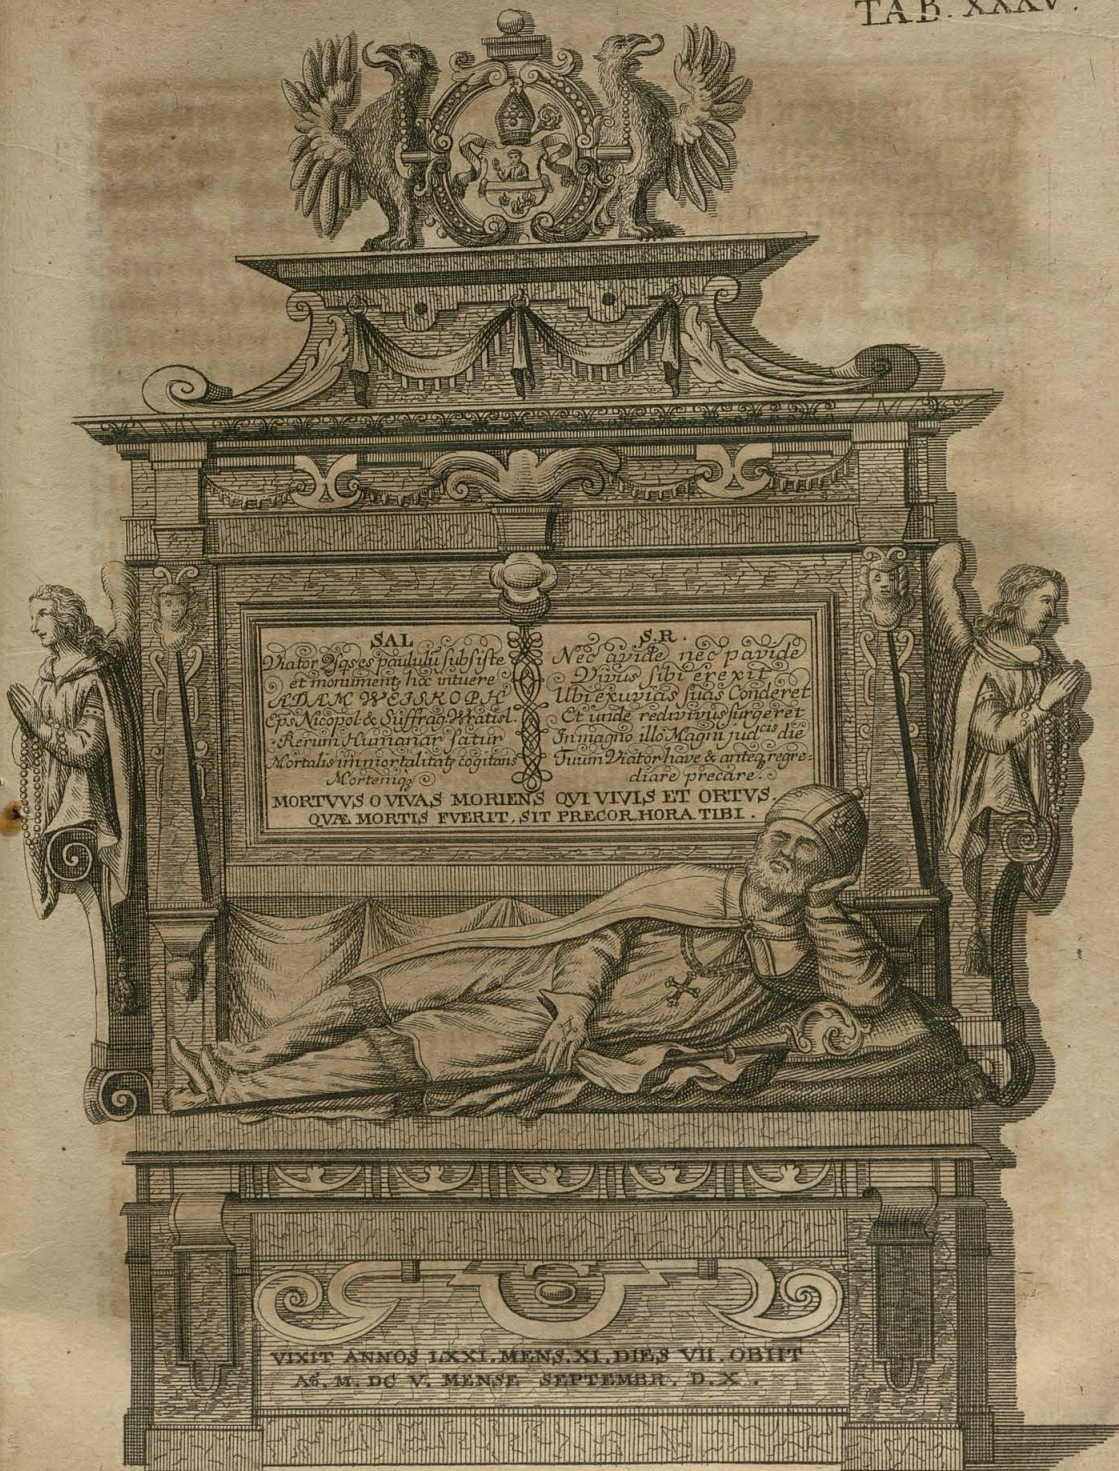 TAB. XXXV.
SAL
Viator Qsqs es paululū subsiste
et monument hic intuere
ADAM WEISKOPH
Eps Nicopol & Suffrag Wratisl.
Rerum Humanar satur
Mortalis immortalitatē cogitans
Mortemqȝ
S.R.
Nec avide nec pavide
Vivus sibi erexit
Ubi exuvias suas Conderet
Et unde redivivus surgeret
In magno illo Magni jud cis die
Tuum Viator have & anteqȝ regre-
diare precare.
MORTVVS O VIVAS MORIENS QVI VIVIS ET ORTVS
QVÆ MORTIS FVERIT, SIT PRECOR HORA TIBI.
VIXIT ANNOS LXXI. MENS. XI. DIES VII. OBIIT
Aō. M. DC V. MENSE SEPTEMBR. D. X.